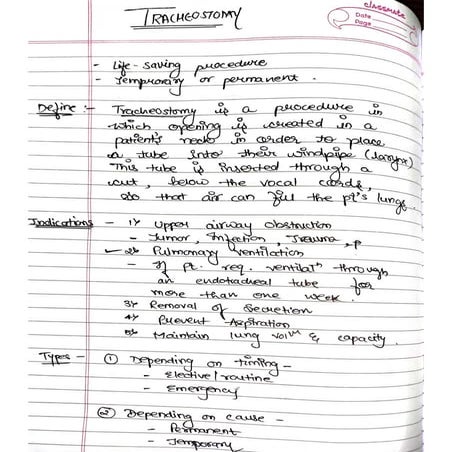 TRACHEOSTOMY
classmate
Date
Page
- Life-saving procedure
- Temporary or permanent.
Define :- Tracheostomy is a procedure in
which opening is created in a
patient's neck in order to place
a tube into their windpipe (larynx)
This tube is inserted through a
cut, below the vocal cords,
so that air can fill the pt's lungs.
Indications - 1) Upper airway obstruction
- Tumor, Infection, Trauma,
2) Pulmonary ventilation
- If pt. req. ventilatn through
an endotracheal tube for
more than one week.
3) Removal of secretion
4) Prevent Aspiration
5) Maintain lung volm & capacity.
Types - ① Depending on timing -
- Elective/routine
- Emergency
② Depending on cause -
- Permanent
- Temporary